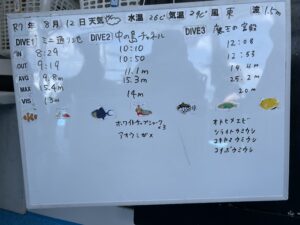 R7年 8月12日 天気 水温 26℃ 気温 29℃ 風 東 波 1.5m
DIVE1 ミニ通り池
IN 8:29
OUT 9:19
AVG 9.8m
MAX 15.4m
VIS 13m
DIVE2 中の島チャネル
10:10
10:50
11.1m
15.3m
14m
ホワイトチップシャーク
×3
アオウミガメ
DIVE3 魔王の宮殿
12:08
12:53
14.4m
25.2m
20m
オトヒメエビ
ウミウシ
ウミウシ
コナユキウミウシ